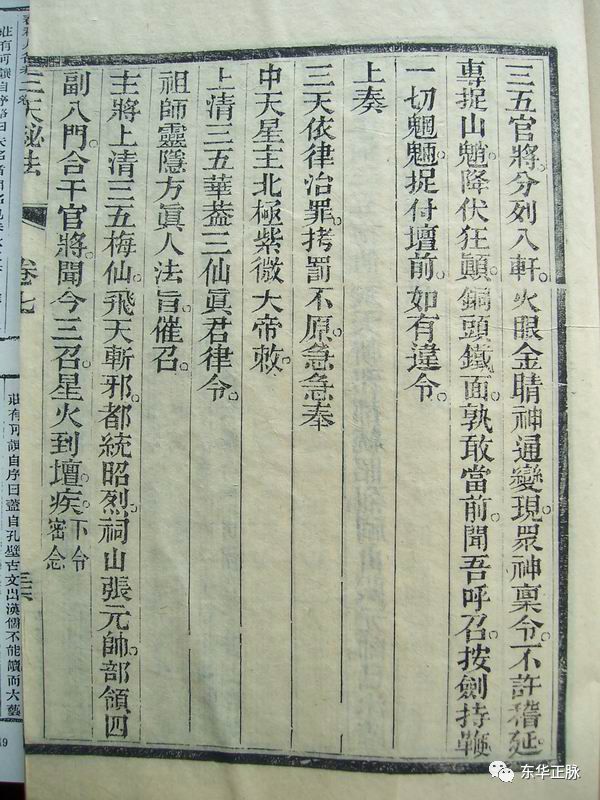 三五官將。分列八軒。火眼金睛神通變現。眾神稟令。不許稽延。
專捉山魈。降伏狂顛。銅頭鐵面。孰敢當前。聞吾呼召。按劍持鞭。
一切魍魎。捉付壇前。如有違令。
上奏
三天依律治罪。拷罰不原。急急奉
中天星主北極紫微大帝敕。
上清三五華蓋三仙眞君律令。
祖師靈隱方眞人法旨催召。
主將上清三五梅仙飛天斬邪。都統昭烈祠山張元帥。部領四
副八門合干官將。聞今三召。星火到壇。疾。下令密念
三天祕法
卷七
莊有可讀自序曰蓋自孔壁古文出漢儒不能讀而大藝
49
东华正脉